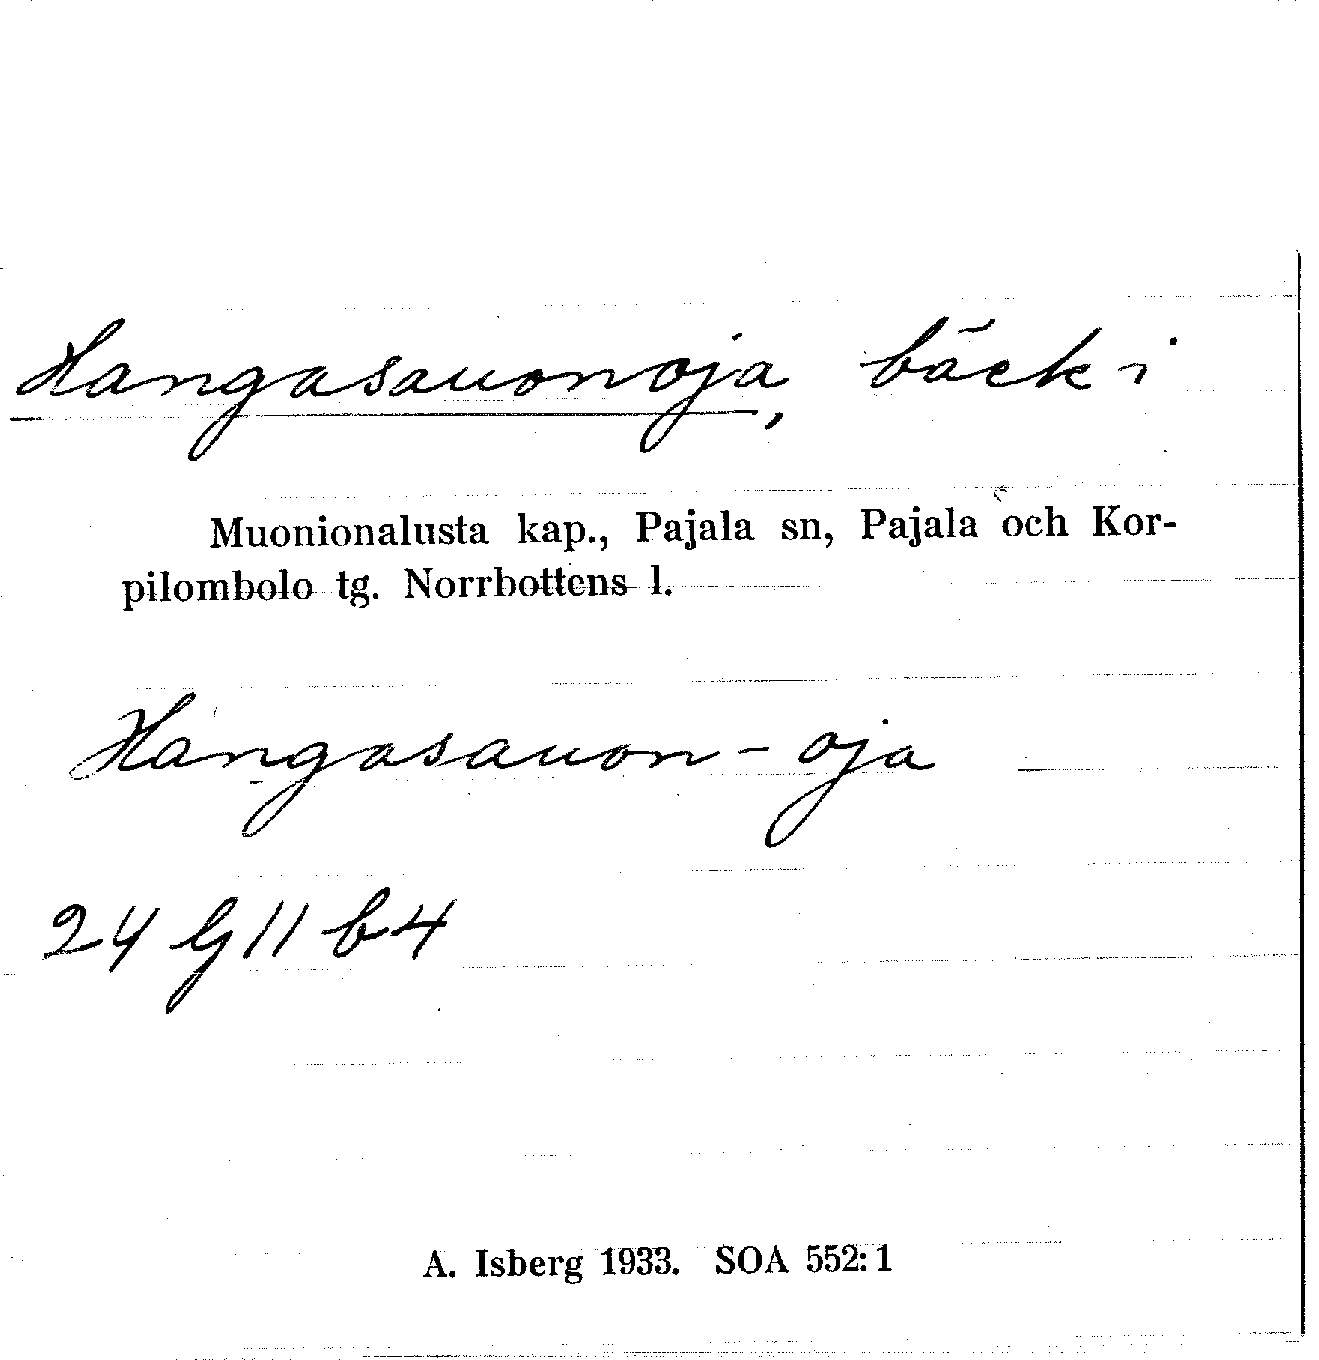 Hangasauonoja, bäck i
Muonionalusta kap., Pajala sn, Pajala och Kor-
pilombolo tg. Norrbottens l.
Hangasauon-oja
24 G II b 4
A. Isberg 1933. SOA 552:1